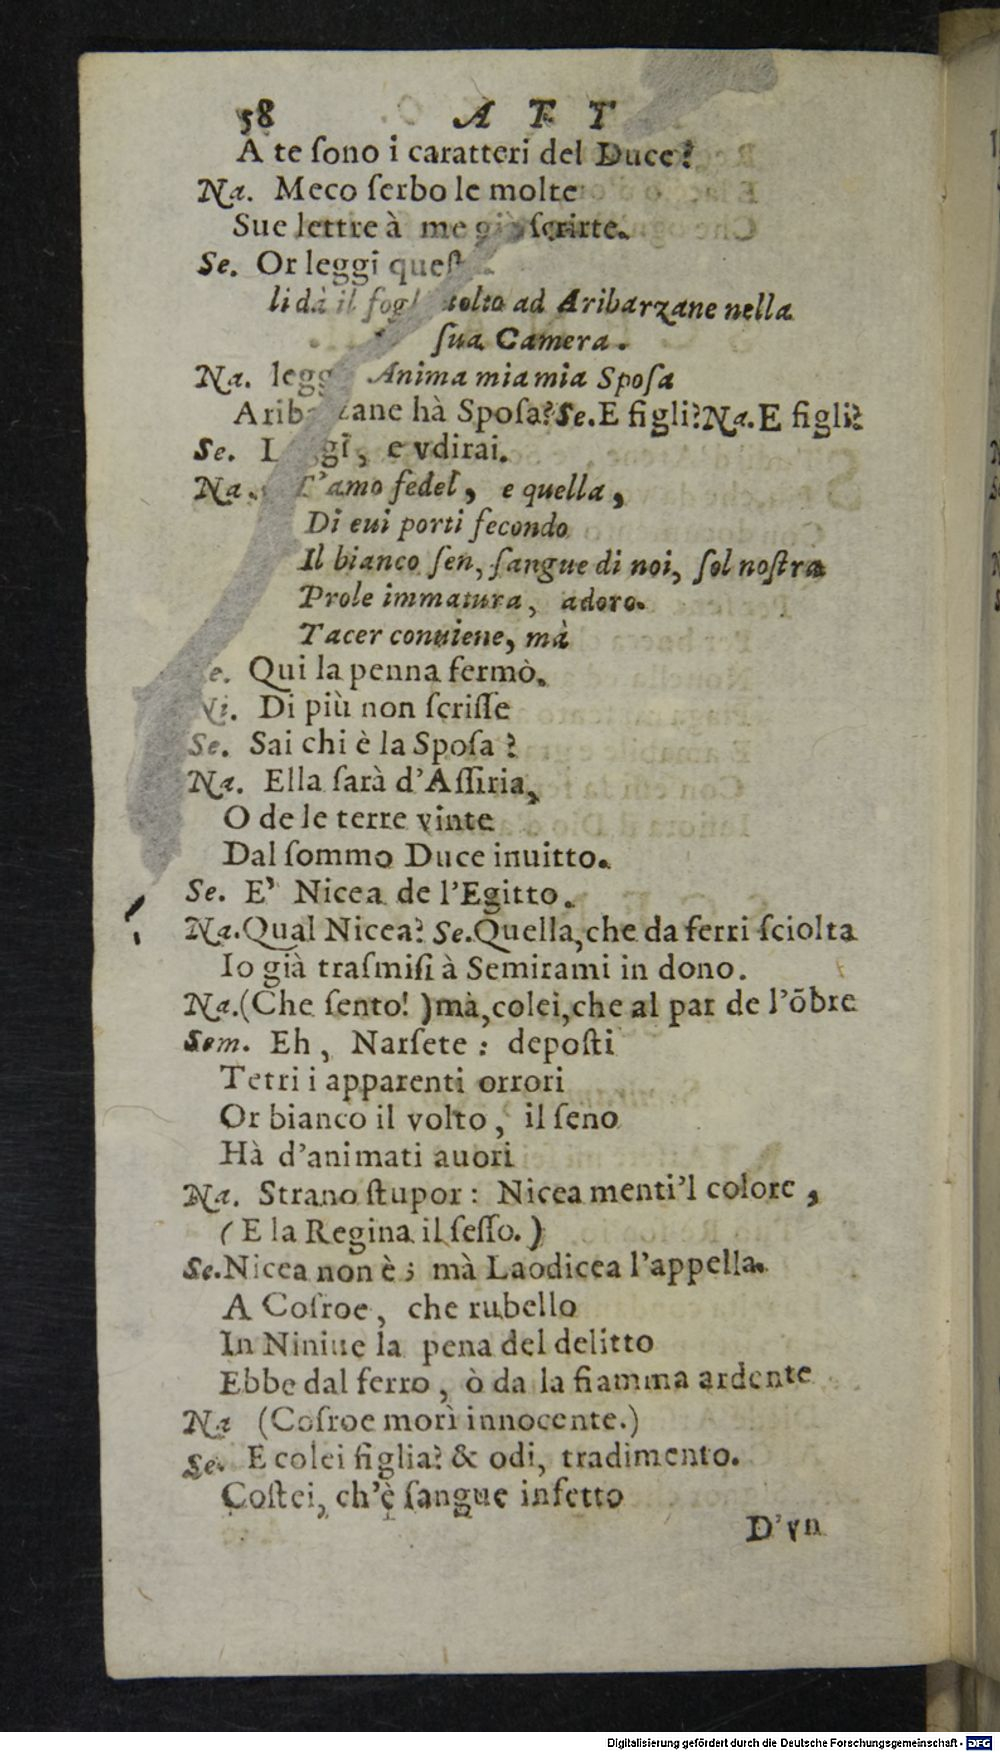 58 ATT
A te ſono i caratteri del Duce?
Na. Meco ſerbo le molte
Sue lettre à me già ſcritte.
Se. Or leggi queſt
li dà il fogl tolto ad Aribarzane nella
ſua Camera.
Na. legg Anima mia mia Spoſa
Aribarzane hà Spoſa? Se. E figli? Na. E figli?
Se. Leggi, e vdirai.
Na. T'amo fedel, e quella,
Di eui porti fecondo
Il bianco ſen, ſangue di noi, ſol noſtra
Prole immatura, adoro.
Tacer conuiene, mà
Se. Qui la penna fermò.
Ni. Di più non ſcriſſe
Se. Sai chi è la Spoſa?
Na. Ella ſarà d'Aſſiria,
O de le terre vinte
Dal ſommo Duce inuitto.
Se. E' Nicea de l'Egitto.
Na. Qual Nicea? Se. Quella, che da ferri ſciolta
Io già traſmiſi à Semirami in dono.
Na. (Che ſento!) mà, colei, che al par de l'õbre
Sem. Eh, Narſete: depoſti
Tetri i apparenti orrori
Or bianco il volto, il ſeno
Hà d'animati auori
Na. Strano ſtupor: Nicea menti'l colore,
(E la Regina il ſeſſo.)
Se. Nicea non è; mà Laodicea l'appella.
A Coſroe, che rubello
In Niniue la pena del delitto
Ebbe dal ferro, ò da la fiamma ardente
Na (Coſroe morì innocente.)
Se. E colei figlia? & odi, tradimento.
Coſtei, ch'è ſangue infetto
D'vn
Digitalisierung gefördert durch die Deutsche Forschungsgemeinschaft - DFG